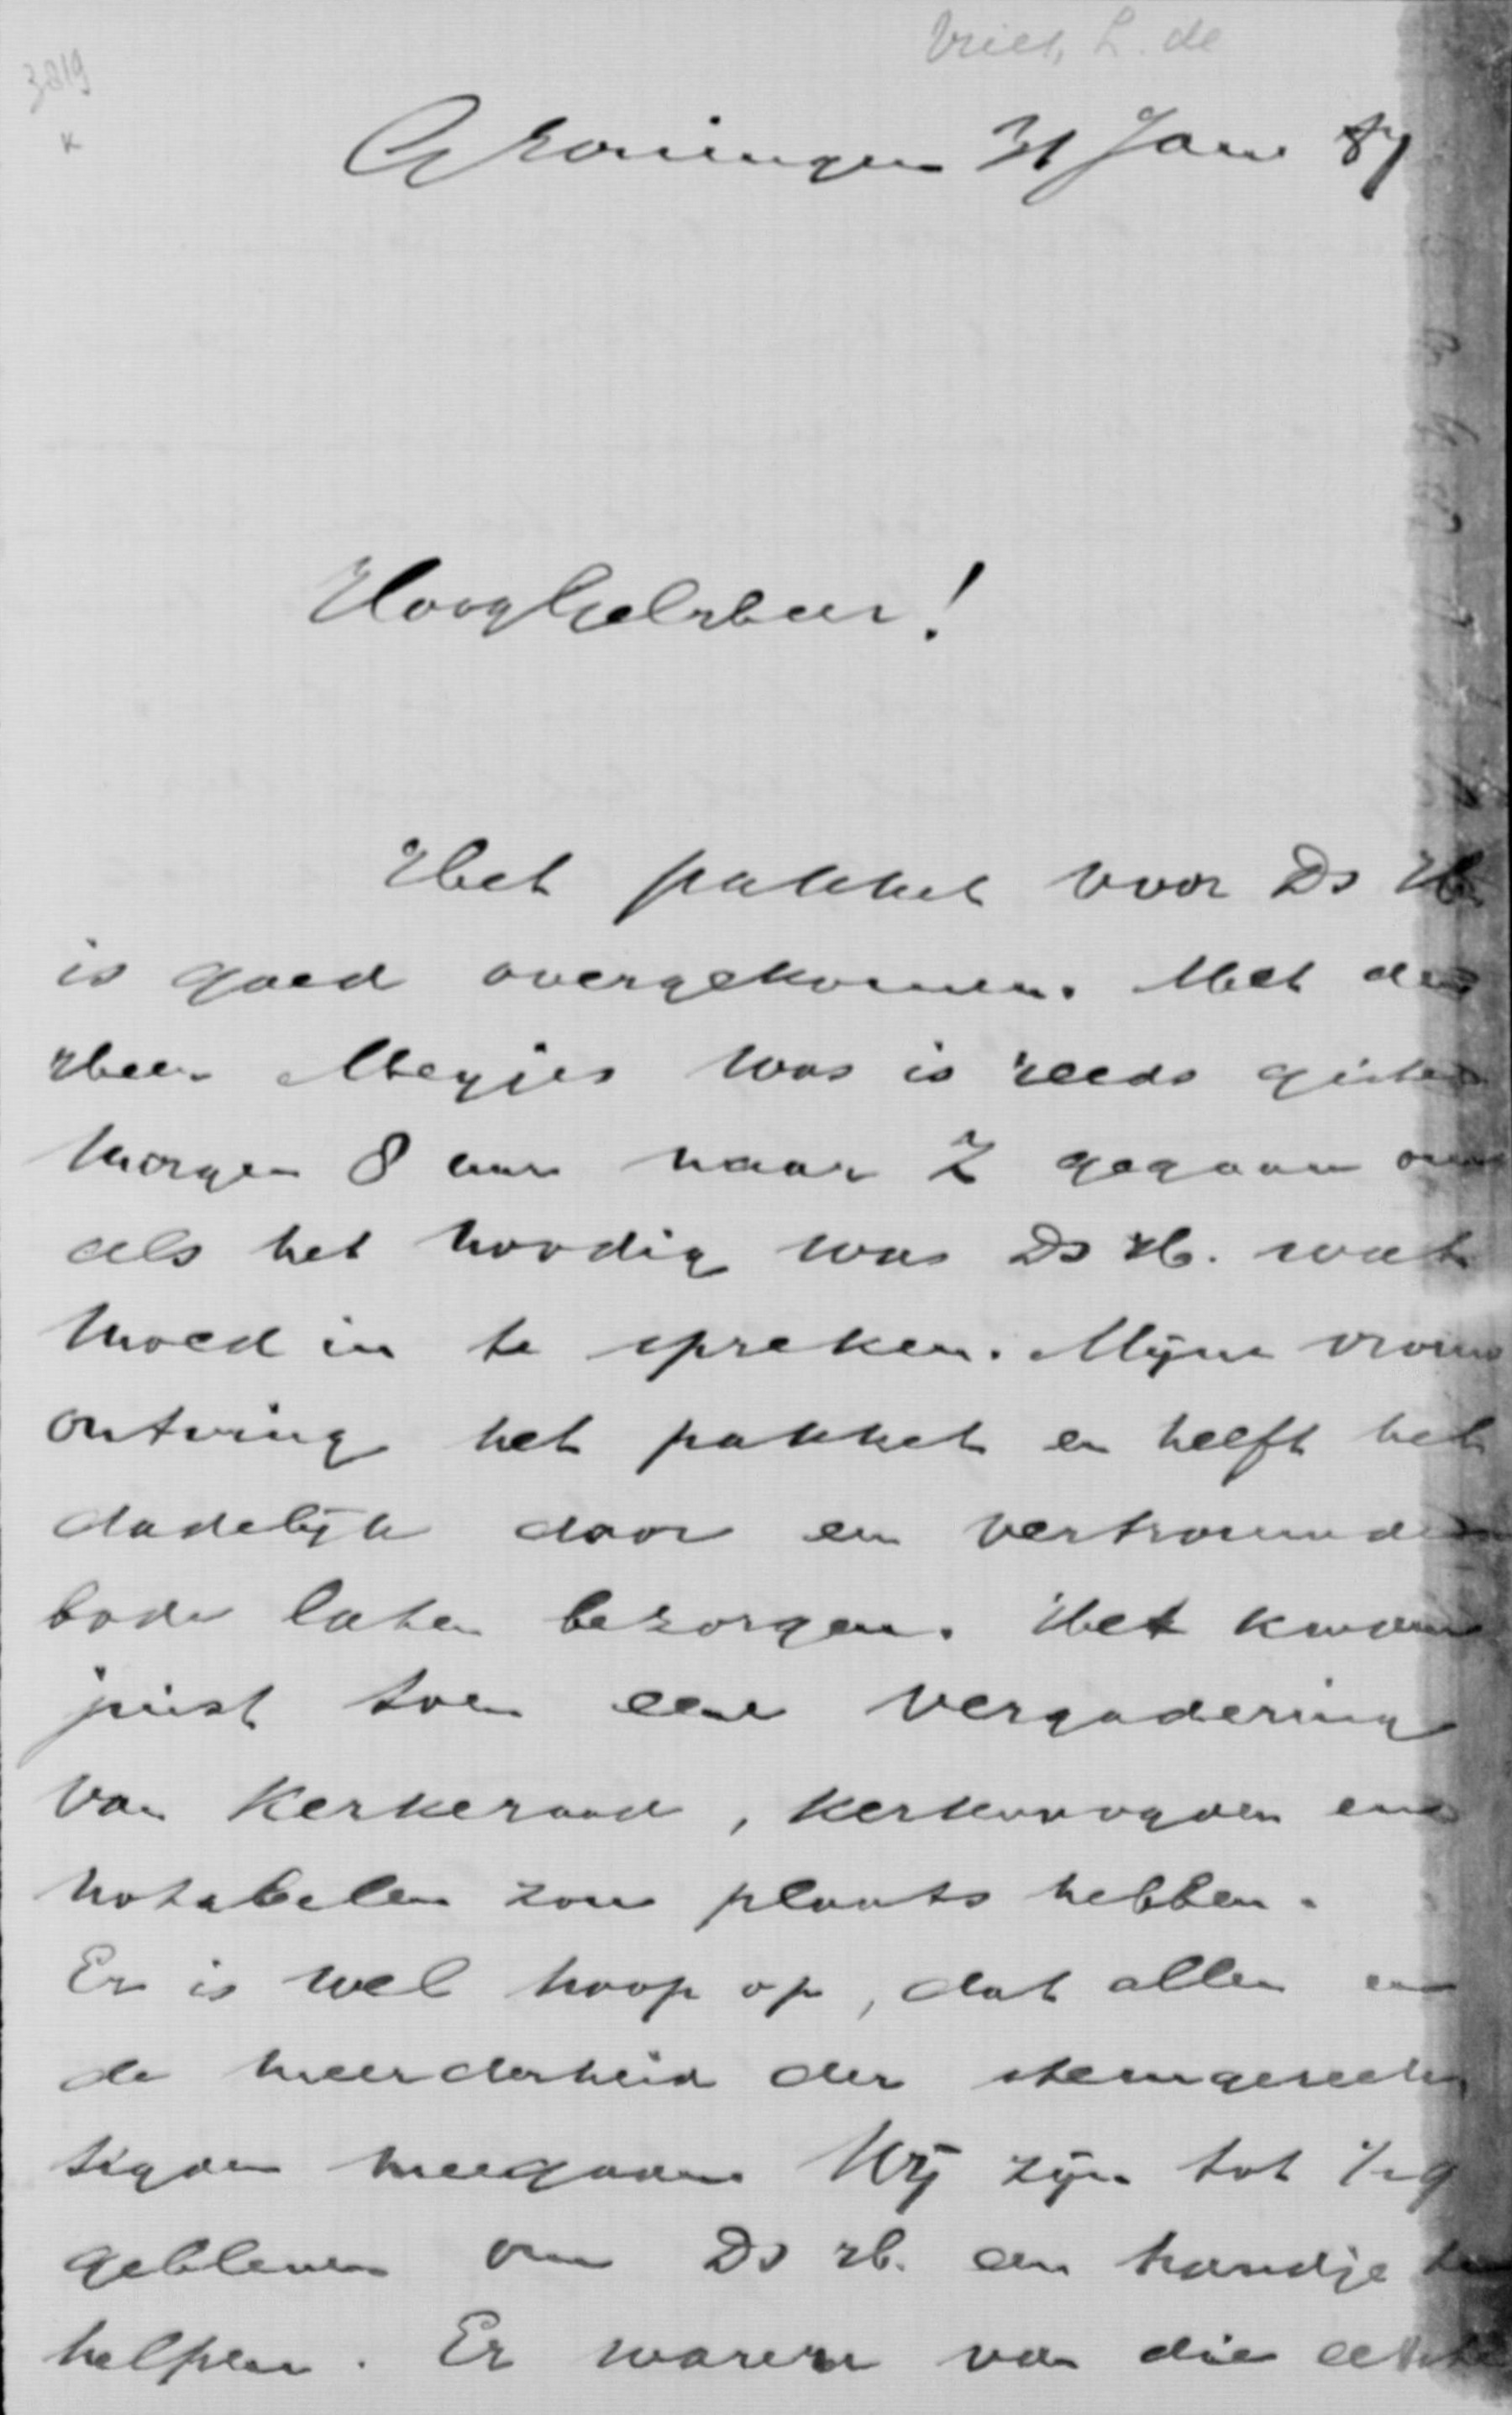 Vries, L. de
3819
K
Groningen 31 Jan 87
HoogGel.Heer!
Het pakket voor Ds H.
is goed overgekomen. Met den
Heer Meyjes was is reeds gister
morgen 8 uur naar Z gegaan om
als het noodig was Ds H. wat
moed in te spreken. Mijne vrouw
ontving het pakket en heeft het
dadelijk door een vertrouwden
bode laten bezorgen. Het kwam
juist toen eene vergadering
van Kerkeraad, kerkvoogden en
notabelen zou plaats hebben.
Er is wel hoop op, dat allen en
de meerderheid der stemgerech
tigden meegaan Wij zijn tot ½ 9
gebleven om Ds H. een handje te
helpen. Er waren van die echte